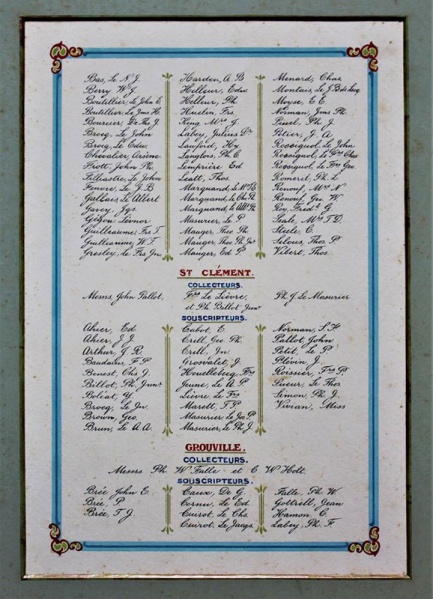 Bas, Le N. J.
Berry W. J.
Boutillier, Le John C.
Boutillier, Le Jms H.
Bourcier
Brocq, Le John
Brocq, Le Edw.
Chevalier, Arsème
Ffiott, John Ph.
Filliastre, Le John
Feuvre, Le J. B
Gallais, Le Albert
Garcy, Jas.
Gibon, Léonor
Guilleaume, Frs T.
Guilleaume, W. T.
Gresley, Le Frs Jn
Harden, A. B
Helleur, Edw.
Helleur, Ph.
Huelin, Frs.
King, Mrs J.
Labey, Julius Dr
Lauford, Hy
Langlois, Ph. C.
Lemprière Ed
Lealt, Thos.
Marquand, Le
Marquand, Le
Marquand, Le
Masurier, Le P.
Mauger, Theo. Ph.
Mauger, Thos. Ph. Jnr
Mauger, Ed P.
Menard, Chas
Montais, Le J. B
Moyse, E. E.
Norman, Jms Ph.
Pinel, Ph. J.
Potier, J. A.
Rossignol, Le John
Rossignol, Le Chas
Rossignol, Le Frs Geo
Romeril, Ph. L.
Renouf, Mrs N.
Renouf, Geo. W.
Roy, Fredk G.
Seale, Mrs T. G.
Steele, C.
Selous, Thos P.
Vibert, Thos.
ST CLÉMENT.
COLLECTEURS.
Messrs. John Pallot, Frs Le Lièvre, Ph. G. Le Masurier
et Ph. Billot Junr
SOUSCRIPTEURS.
Ahier, Ed
Ahier, J. J.
Arthur, G. R.
Baudains, F. P.
Benest, Chs J.
Billot, Ph. Junr
Boléat, J.
Brocq, Le Jn.
Brown, Geo.
Brun, Le A. A.
Cabot, E.
Crill, Geo. Ph.
Crill, Jn.
Grossalet, J.
Houillebecq, Frs
Jeune, Le A. P.
Lièvre, Le Frs
Marett, F. P.
Masurier, Le Jn P.
Masurier, Le Ph. J.
Norman, S. H
Pallot, John
Petit, Le P.
Blévin, J.
Roissier, Frs P.
Sueur, Le Thos
Simon, Ph. J.
Vivian, Miss
GROUVILLE.
COLLECTEURS.
Messrs Ph. W. Falle et C. W. Holt.
SOUSCRIPTEURS.
Brée, John E.
Brée, P.
Brée, T. J.
Caux, De G.
Cornu, Le Ed.
Cuirot, Le Chs.
Cuirot, Le Jacqs
Falle, Ph. W.
Gottrell, Jean
Hamon, C.
Labey, Ph. F.